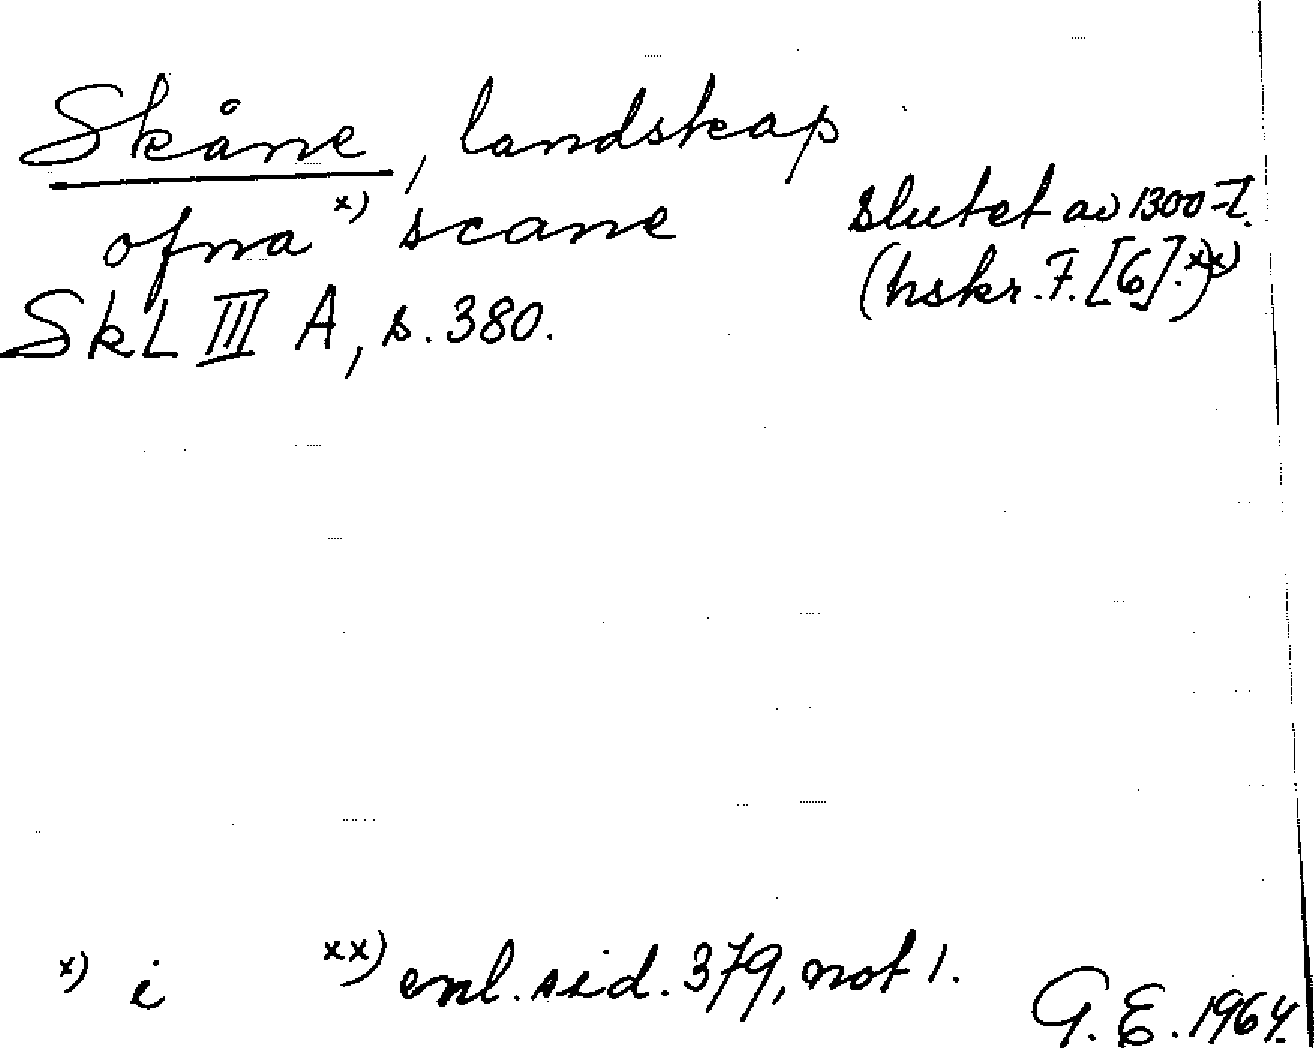 Skåne, landskap
ofna x) scane
slutet av 1300-t.
(hskr. F. [6].) xx)
SkL III A, s. 380.
x) i
xx) enl. sid. 379, not 1.
G. E. 1964.